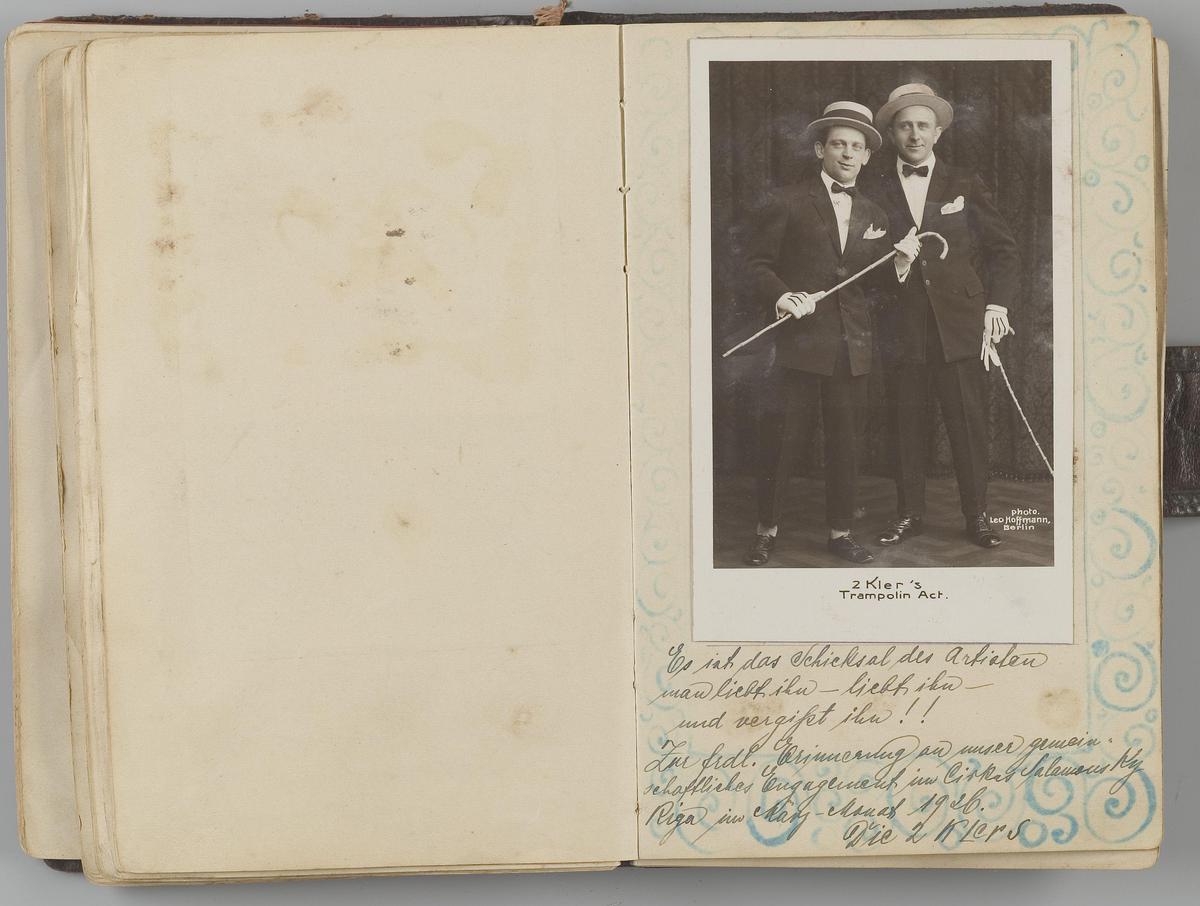 photo.
Leo Hoffmann,
Berlin
2 Kler's
Trampolin Act.
Es ist das Schicksal des Artisten
man liebt ihn – liebt ihn –
und vergißt ihn!!
Zur frdl. Erinnerung an unser gemein-
schaftliches Engagement im Cirkus Salamonsky
Riga im März-Monat 1926.
Die 2 Klers